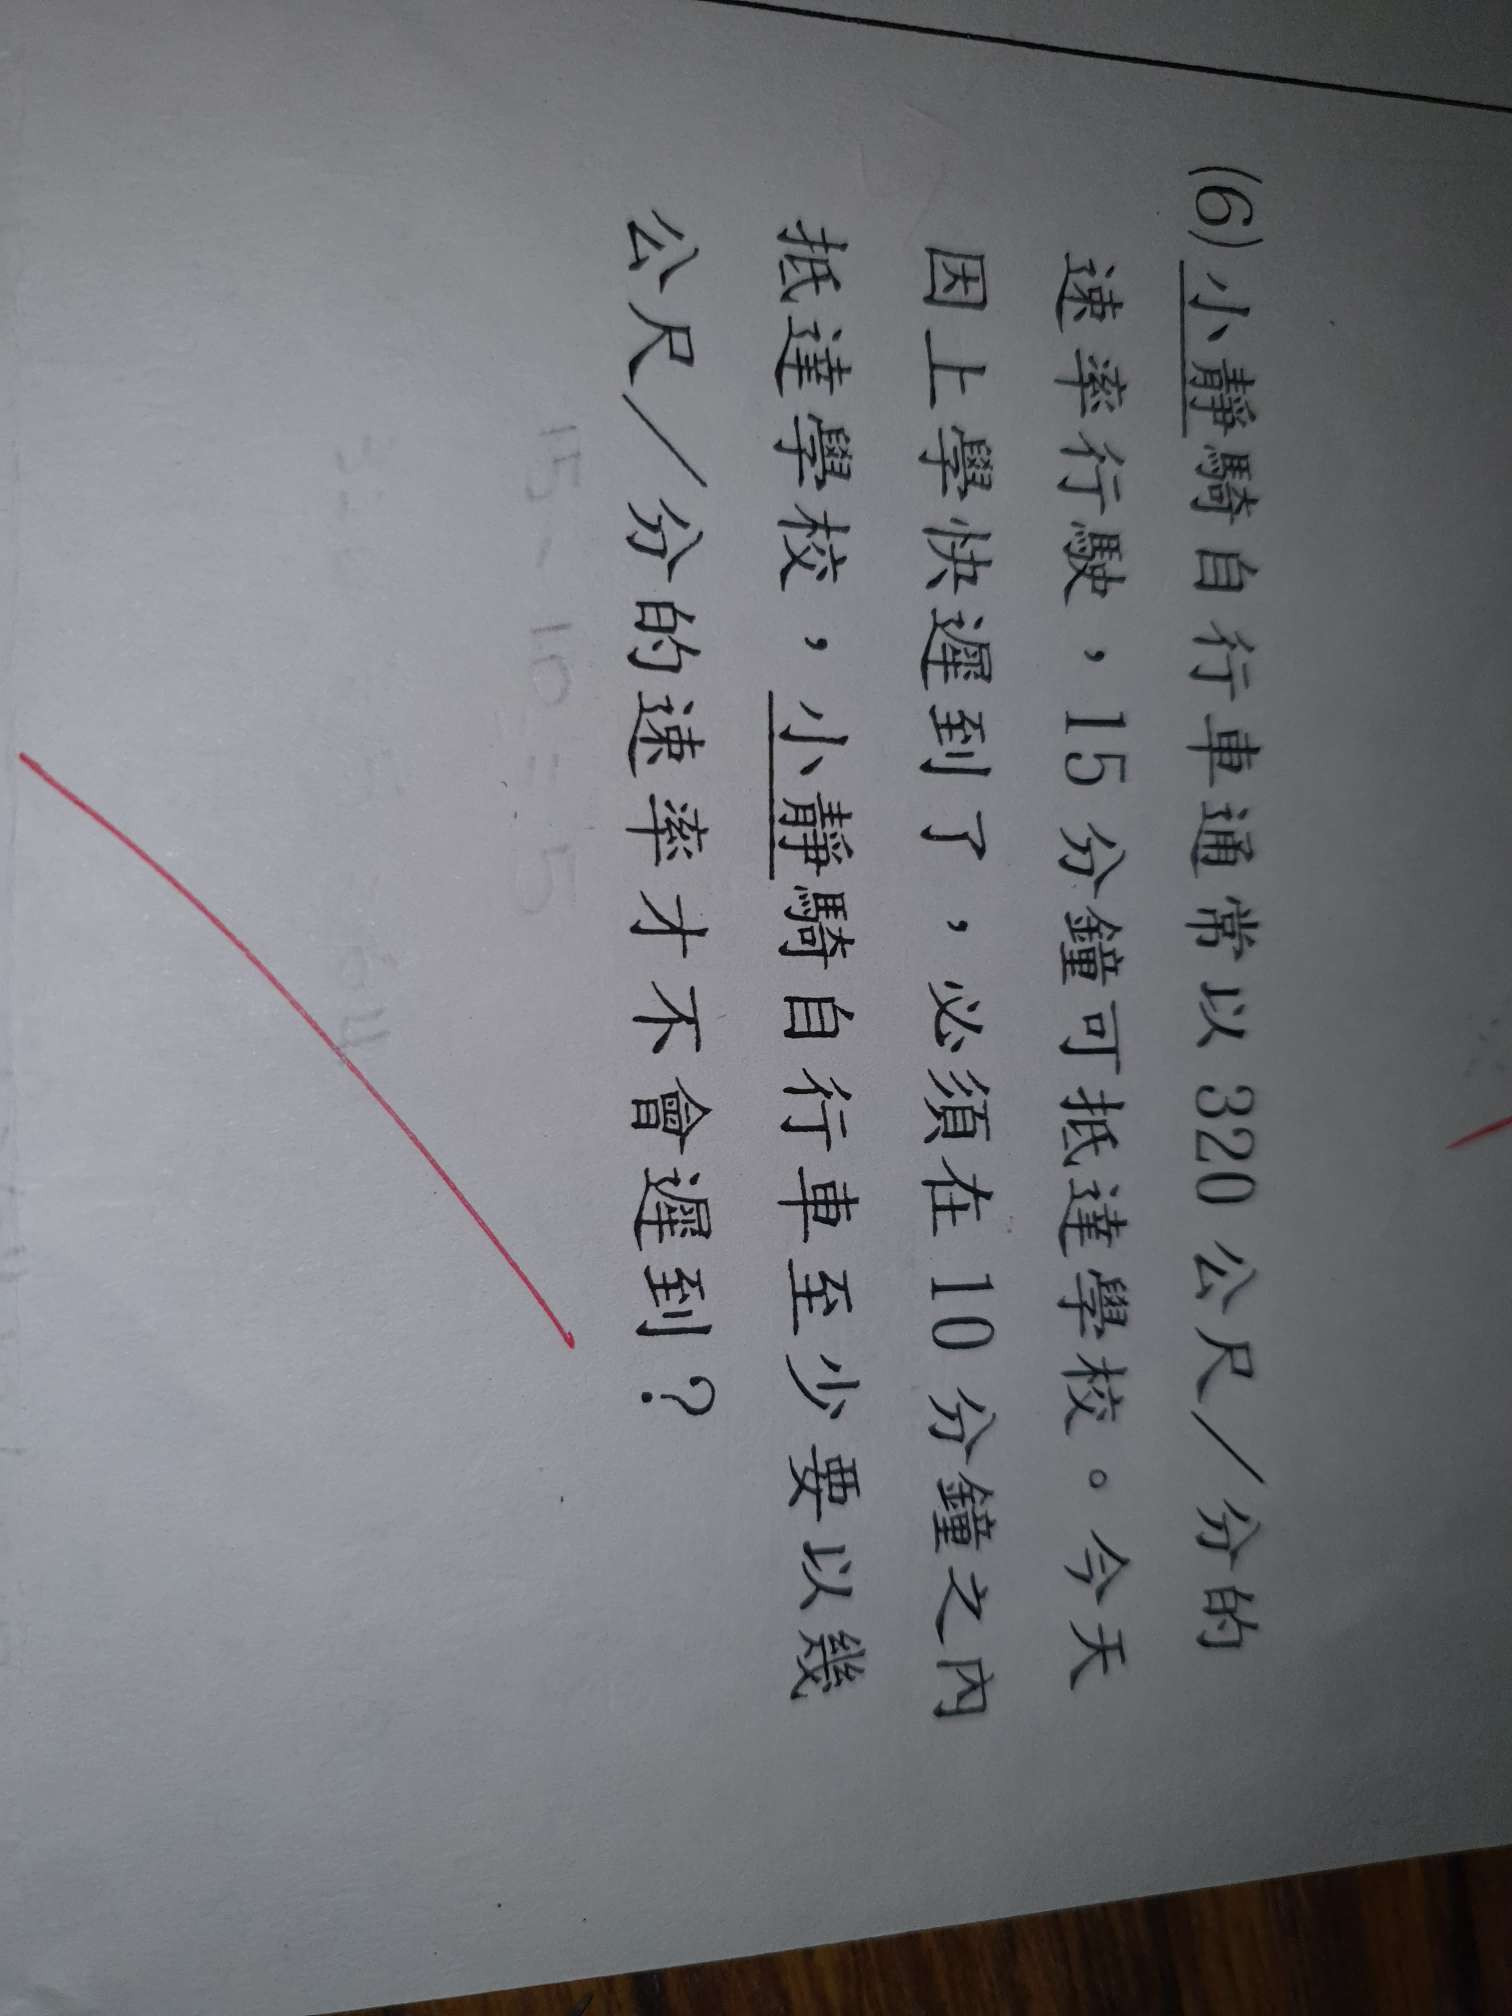 (6)小靜騎自行車通常以 320 公尺／分的
速率行駛，15 分鐘可抵達學校。今天
因上學快遲到了，必須在 10 分鐘之內
抵達學校，小靜騎自行車至少要以幾
公尺／分的速率才不會遲到？
15-10=5